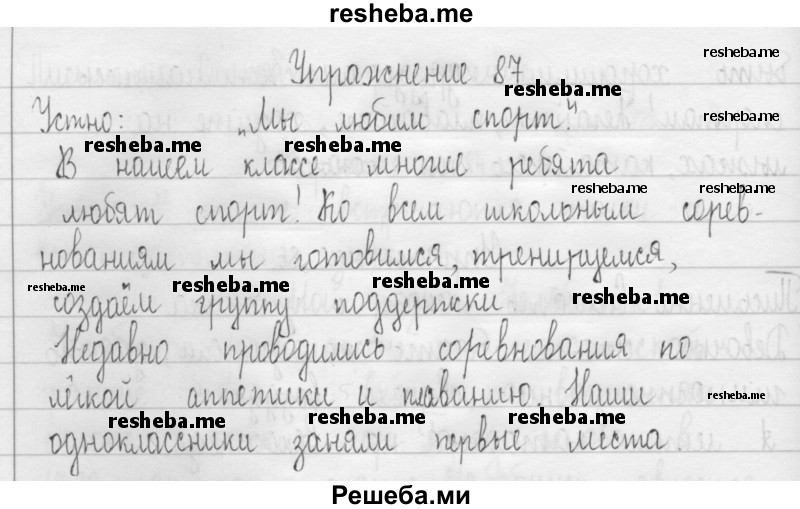 resheba.me
resheba.me
Упражнение 87
resheba.me
Устно: „Мы любим спорт".
resheba.me resheba.me
В нашем классе многие ребята
resheba.me resheba.me
любят спорт! Ко всем школьным сорев-
нованиям мы готовимся, тренируемся,
resheba.me resheba.me resheba.me resheba.me
создаём группу поддержки.
Недавно проводились соревнования по
лёгкой аппетики и плаванию. Наши
resheba.me
resheba.me resheba.me resheba.me
одноклассники заняли первые места.
Решеба.ми